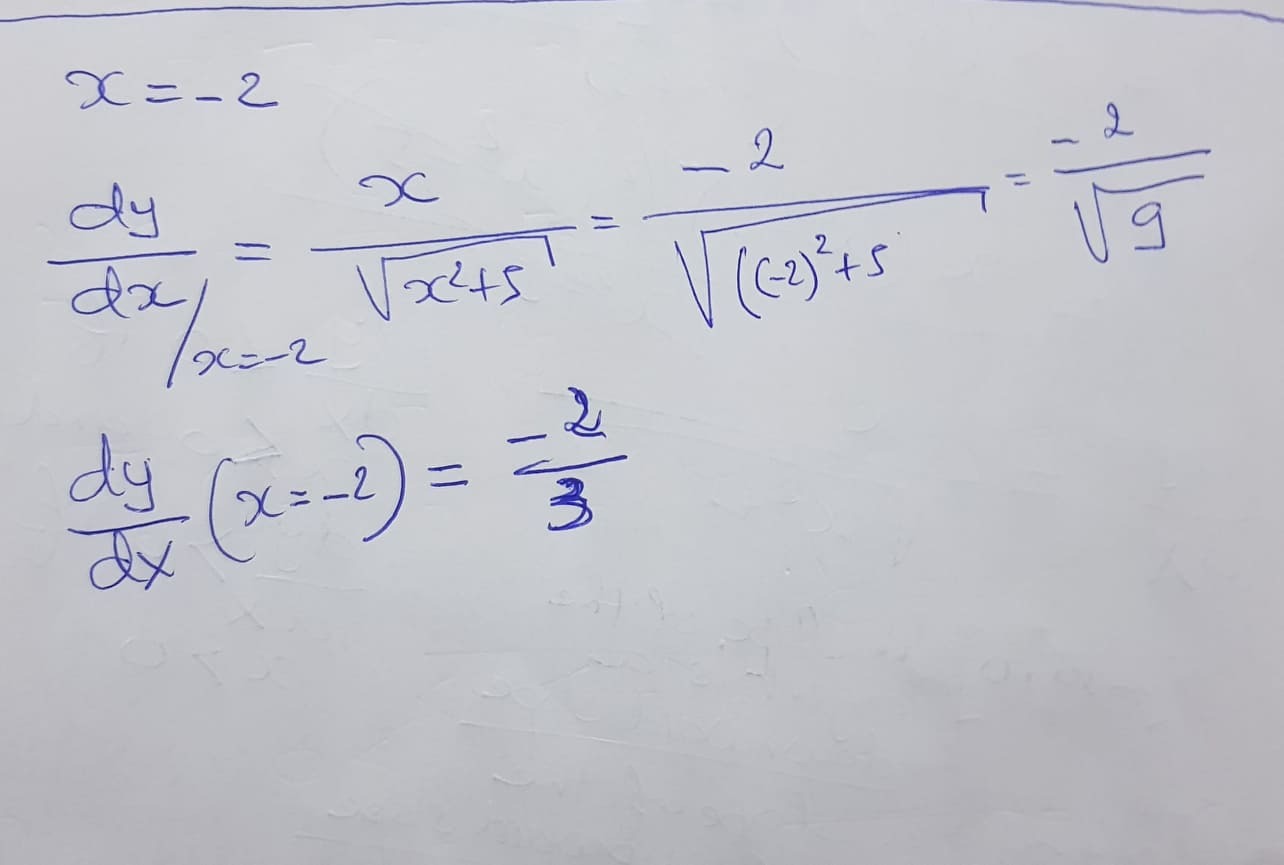 x = -2
dy/dx /x=-2 = x/√(x²+5) = -2/√(((-2)²+5 = -2/√9
dy/dx (x=-2) = -2/3